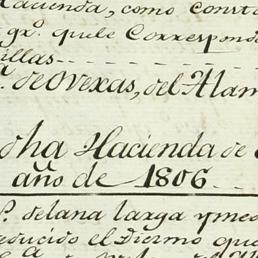 Hacienda, como const
gr.º qu.e le Correspond
illas
a. de Ovexas, del Alam
dha Hacienda de
año de 1806
P. de lana larga y me
reducido el Diezmo qu